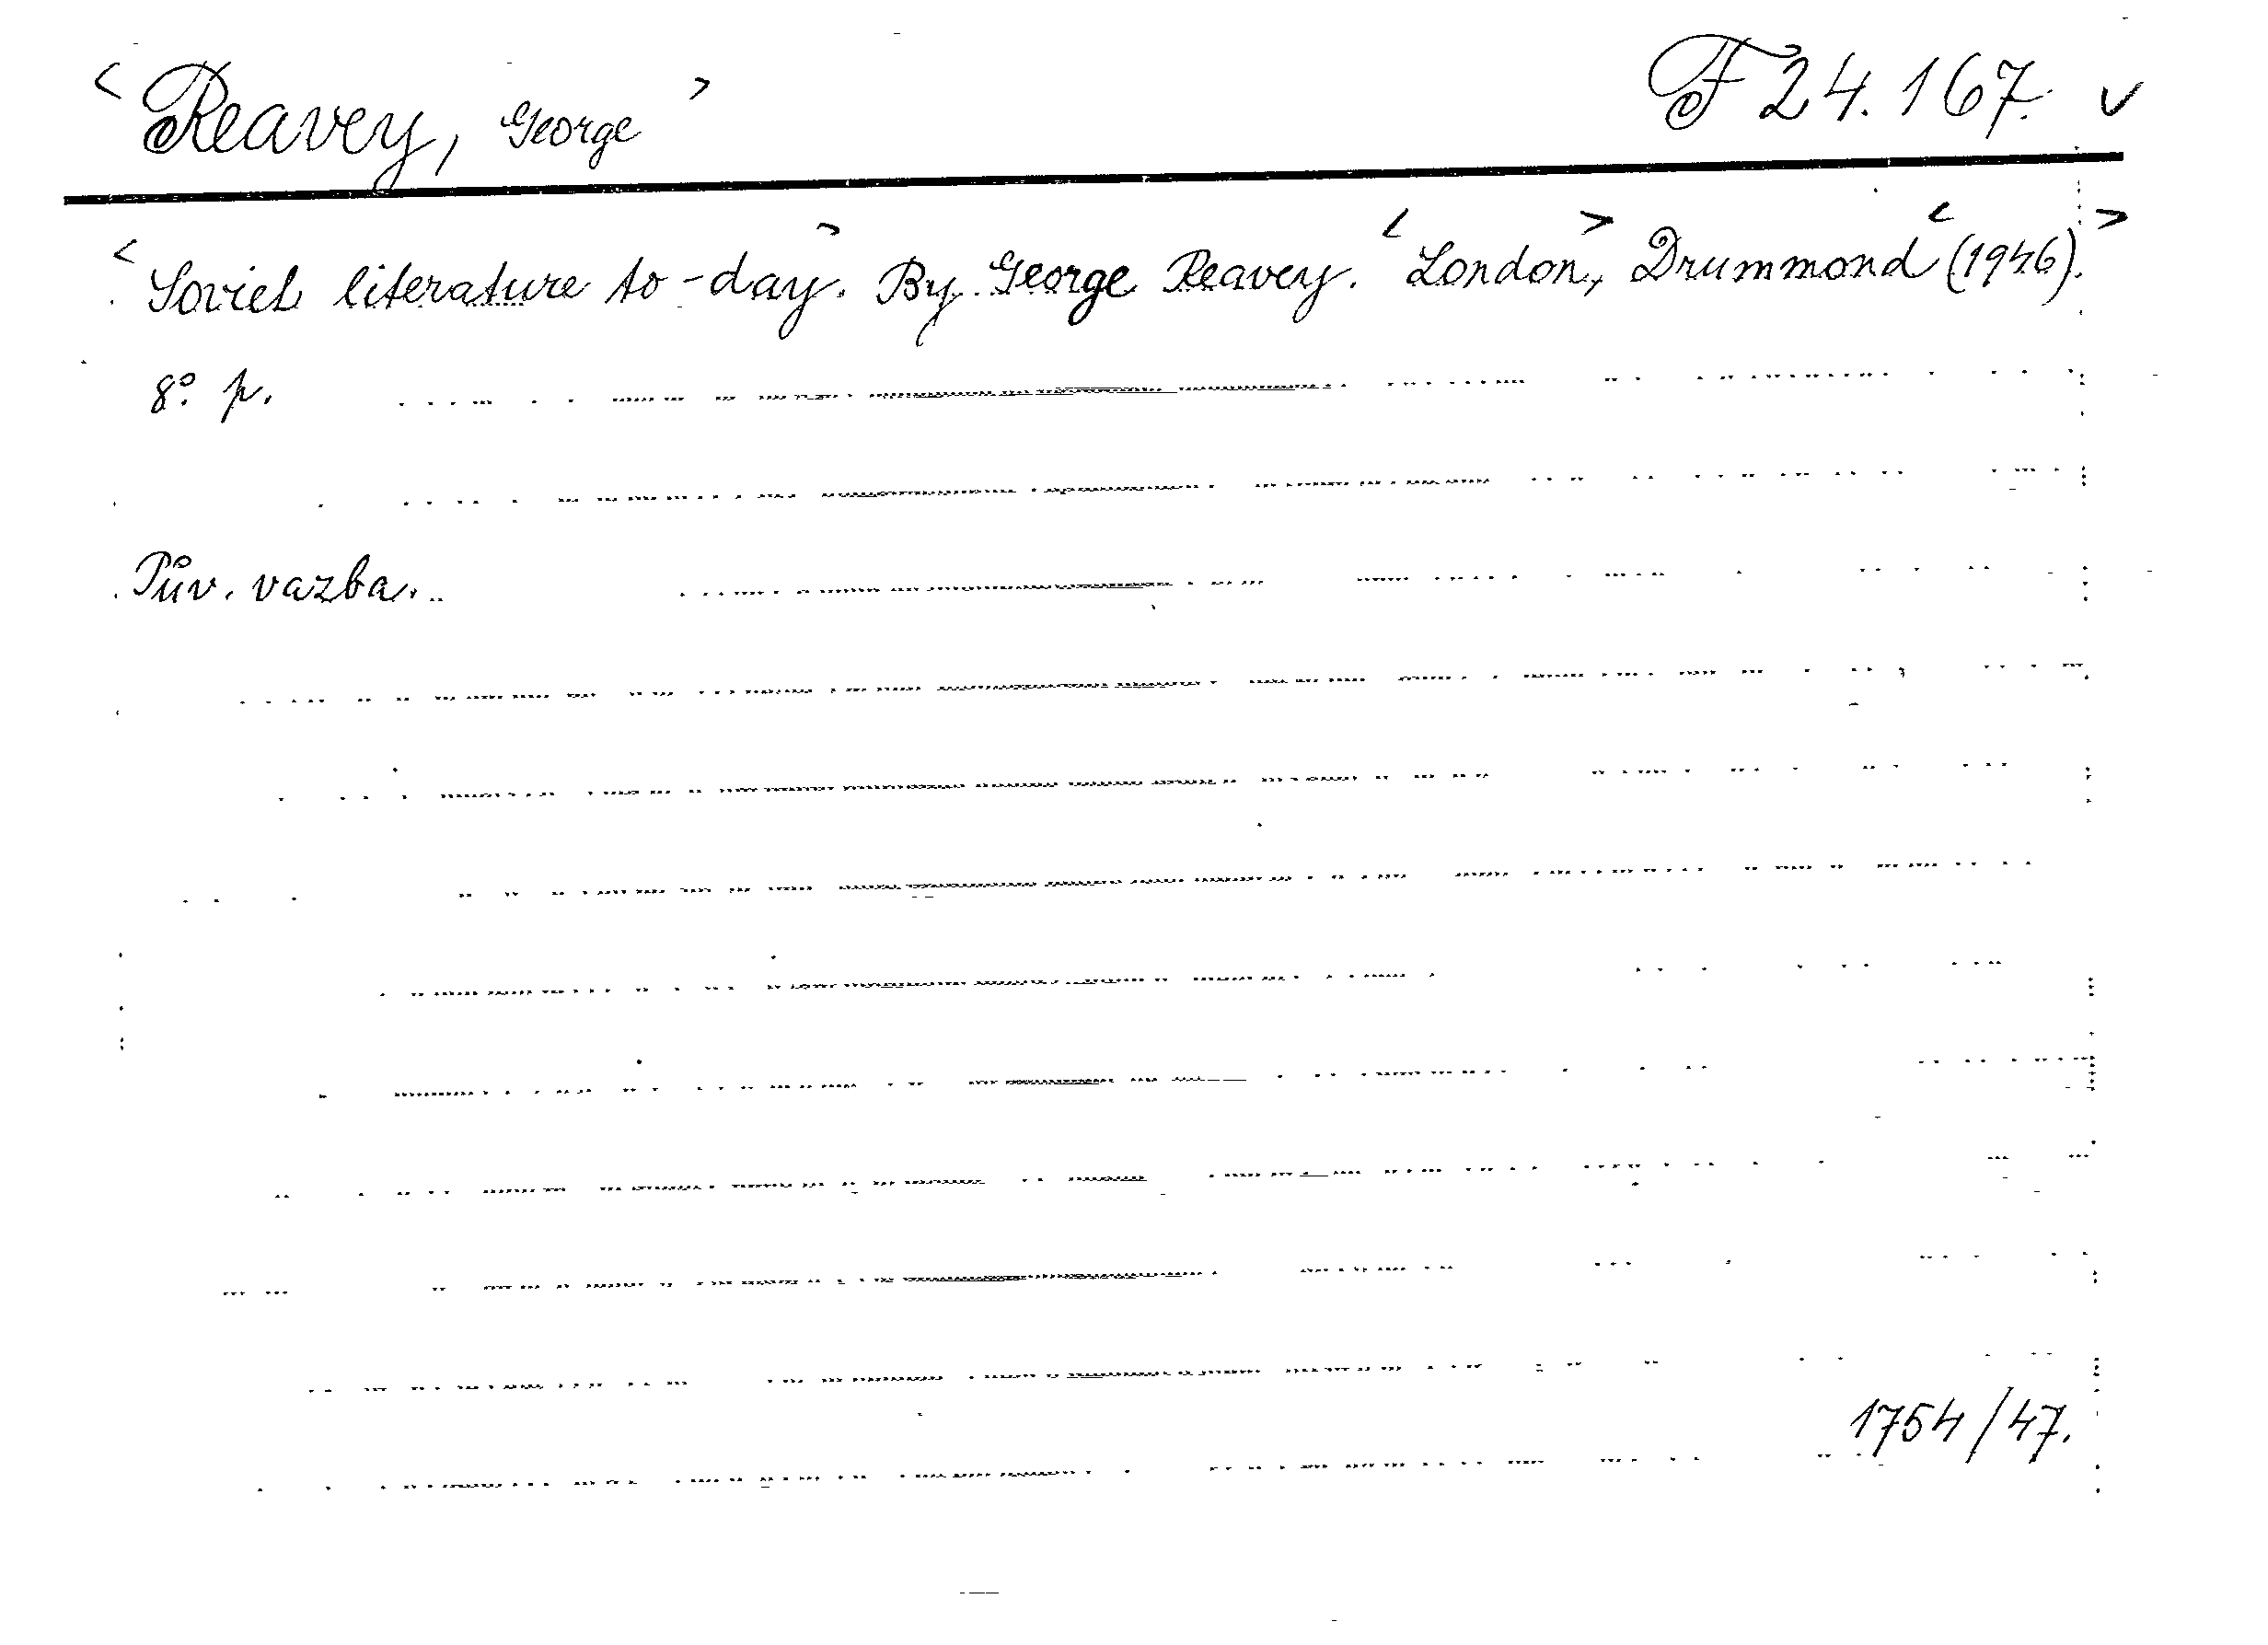 <Reavey, George> F 24.167. v
<Soviet literature to-day>. By George Reavey. <London>, Drummond <(1946).>
8°. p.
Pův. vazba.
1754/47.